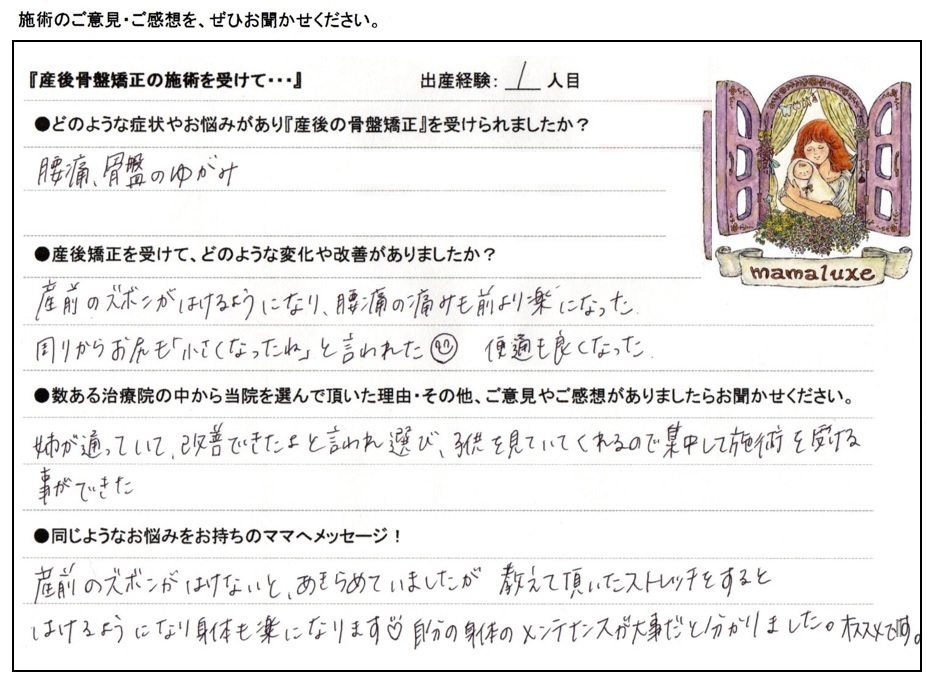 施術のご意見・ご感想を、ぜひお聞かせください。
『産後骨盤矯正の施術を受けて・・・』 出産経験: 1 人目
●どのような症状やお悩みがあり『産後の骨盤矯正』を受けられましたか？
腰痛、骨盤のゆがみ
●産後矯正を受けて、どのような変化や改善がありましたか？
mamaluxe
産前のズボンがはけるようになり、腰痛の痛みも前より楽になった.
周りからお尻も「小さくなったね」と言われた 便通も良くなった.
●数ある治療院の中から当院を選んで頂いた理由・その他、ご意見やご感想がありましたらお聞かせください。
姉が通っていて、改善できたよと言われ選び、子供を見ていてくれるので集中して施術を受ける
事ができた
●同じようなお悩みをお持ちのママへメッセージ！
産前のズボンがはけないと、あきらめていましたが 教えて頂いたストレッチをすると
はけるようになり身体も楽になります♡ 自分の身体のメンテナンスが大事だと分かりました。オススメです。